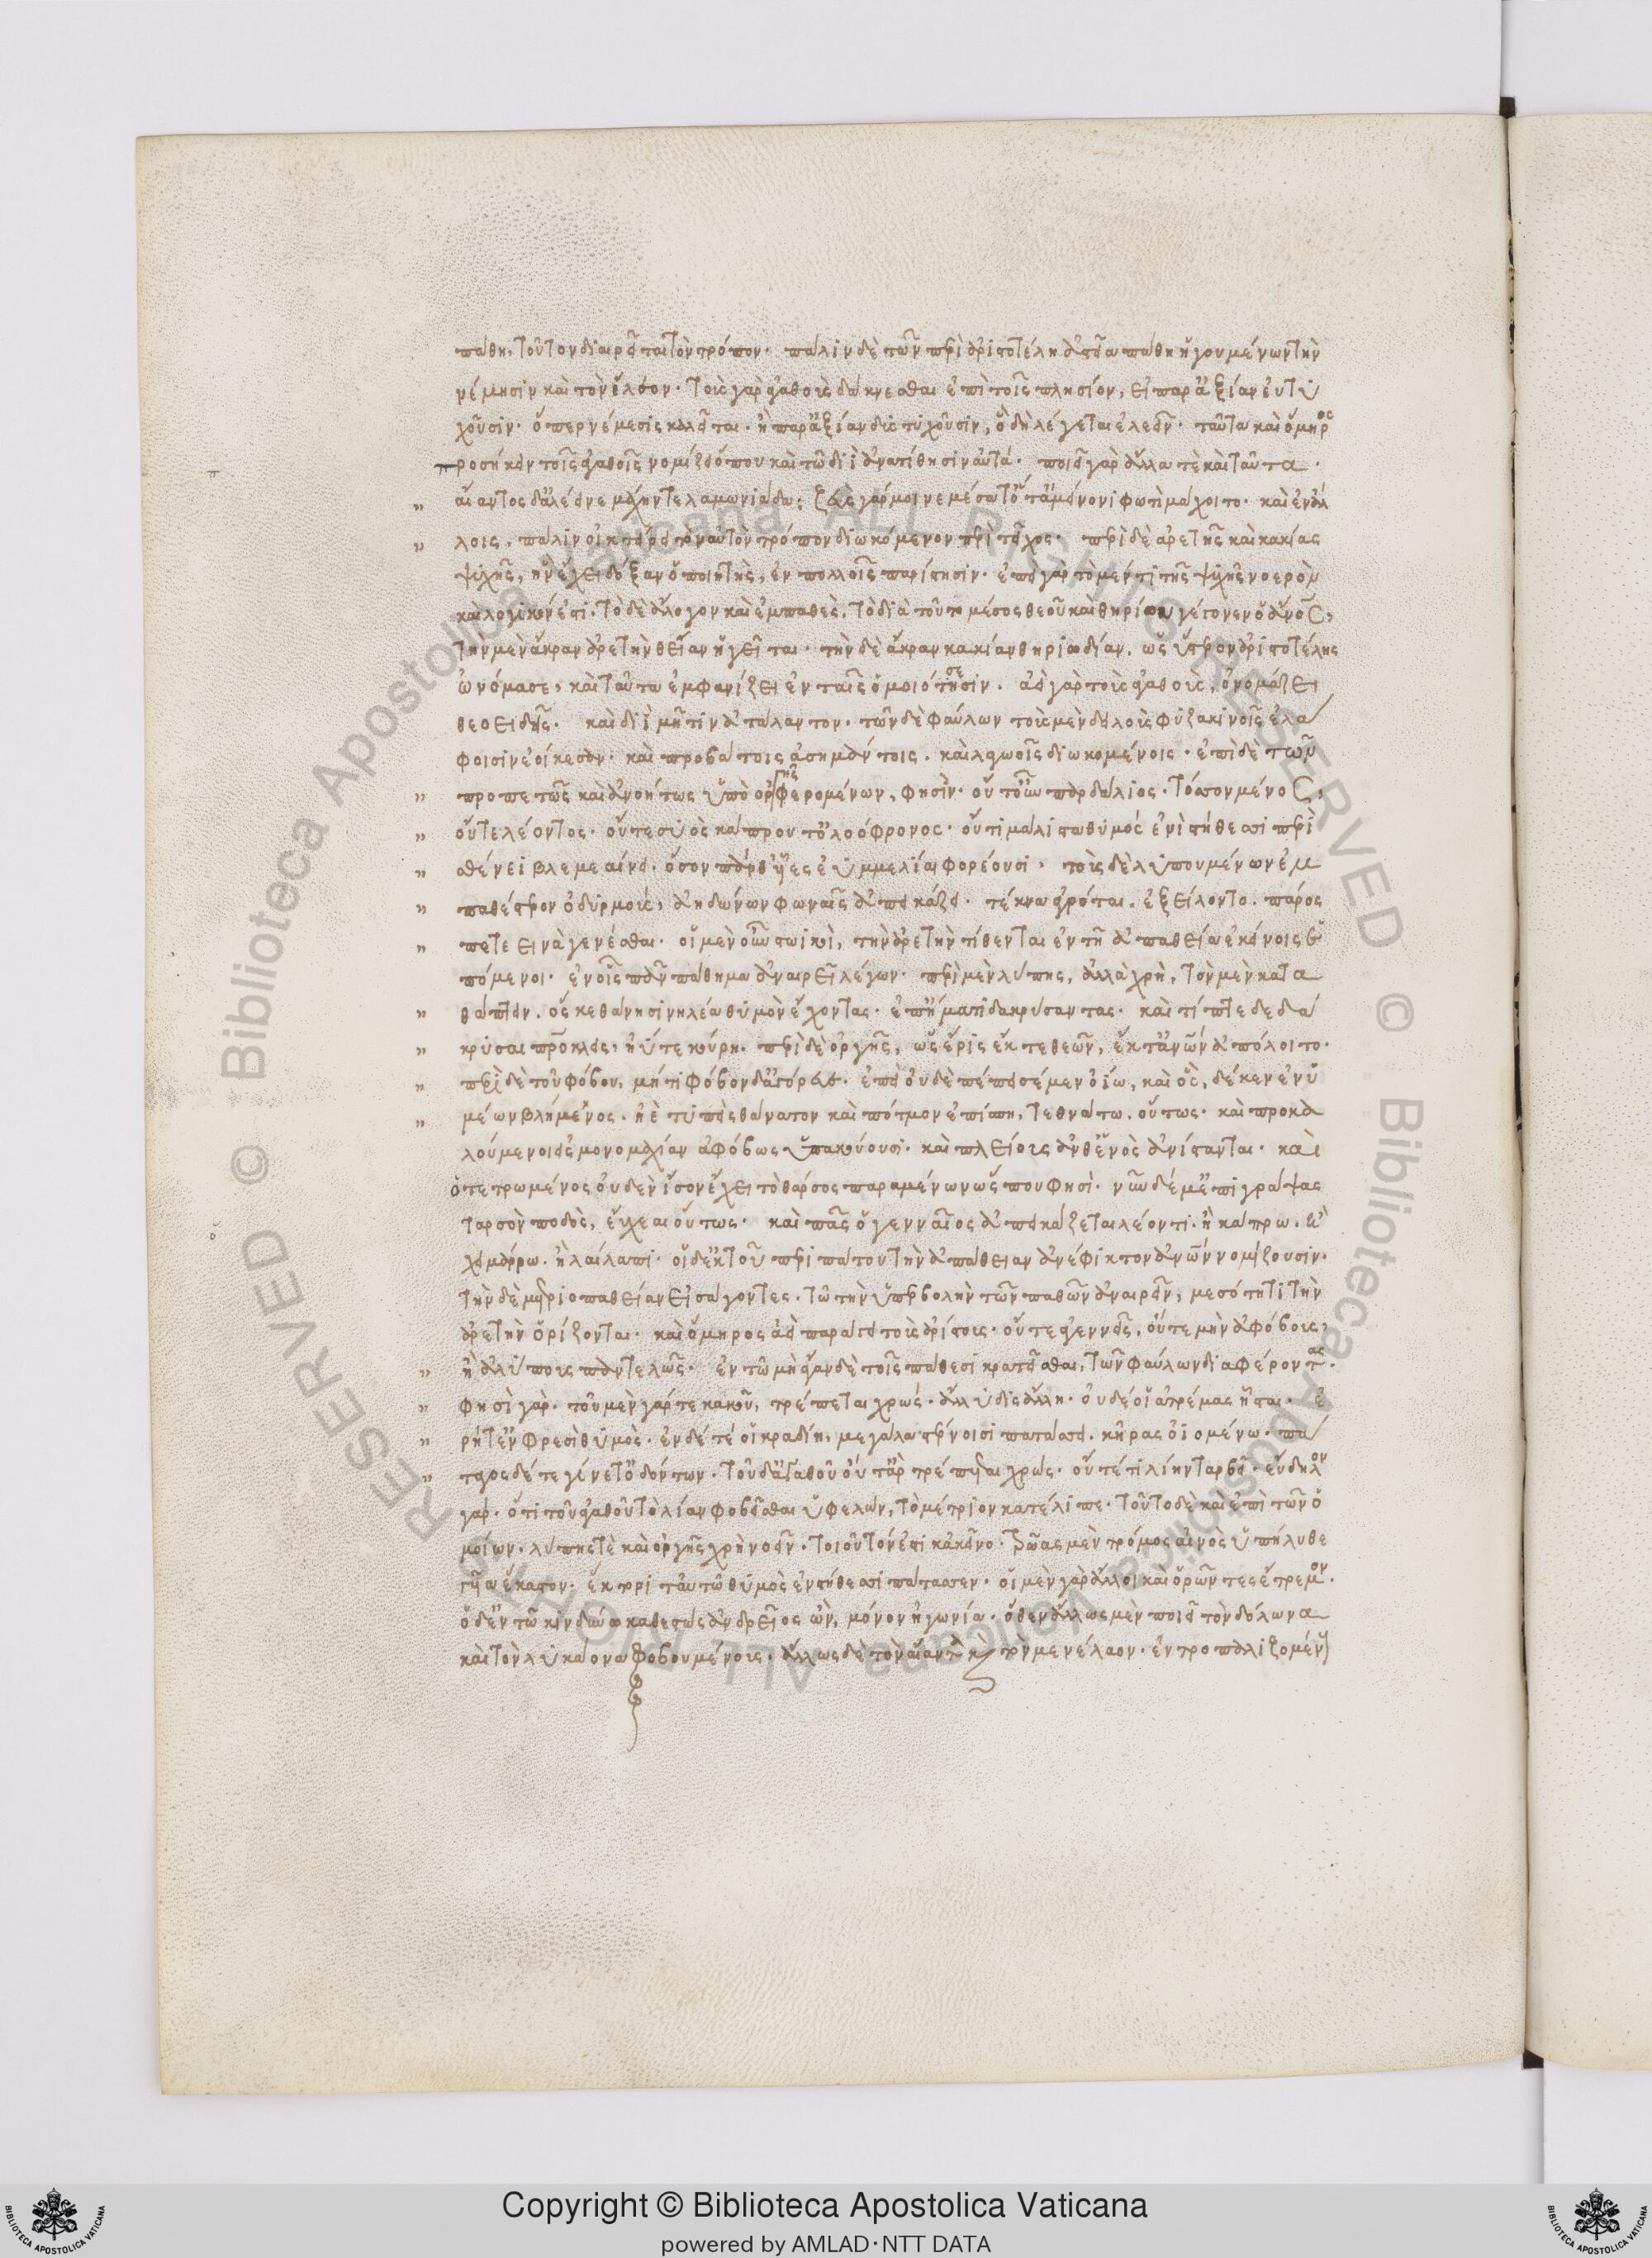 πάθη, τοῦτον διαιρεῖται τὸν τρόπον. πάλιν δὲ τῶν περὶ ἀριστοτέλη ἀστεῖα πάθη ἡγουμένων τὴν
νέμησιν καὶ τὸν ἔλεον. τοὺς γὰρ ἀγαθοὺς δάκνεσθαι ἐπὶ τοῖς πλησίον, εἰ παρ' ἀξίαν εὐτυ
χοῦσιν. ὅπερ νέμεσις καλεῖται. ἢ παρ' ἀξίαν δυστυχοῦσιν, ὃ δὴ λέγεται ἐλεεῖν. ταῦτα καὶ ὅμηρος
προσήκειν τοῖς ἀγαθοῖς νομίζει ὅπου καὶ τῶ διῒ ἀνατίθησιν αὐτά. ποιεῖ γὰρ ἄλλα τε καὶ ταῦτα.
αἴαντος δ' ἀλέεινε μάχην τελαμωνιάδαο; ζεὺς γάρ μοι νεμέσα τ' ὅτ' ἀμείνονι φωτὶ μάχοιτο. καὶ ἐν ἄλ
λοις, πάλιν οἰκτείρει τὸν αὐτὸν τρόπον διωκόμενον περὶ τεῖχος. περὶ δὲ ἀρετῆς καὶ κακίας
ψυχῆς, ἣν ἔχει δόξαν ὁ ποιητὴς, ἐν πολλοῖς παρίστησιν. ἐπεὶ γὰρ τὸ μέν τι τῆς ψυχῆς νοερὸν
καὶ λογικόν ἐστι. τὸ δὲ ἄλογον καὶ ἐμπαθὲς. τὸ διὰ τοῦτο μέσος θεοῦ καὶ θηρίου γέγονεν ὁ ἄνος,
τὴν μὲν ἄκραν ἀρετὴν θείαν ἡγεῖται. τὴν δὲ ἄκραν κακίαν θηριωδίαν. ὡς ὕστερον ἀριστοτέλης
ὠνόμασε, καὶ ταῦτα ἐμφανίζει ἐν ταῖς ὁμοιότησεσιν. ἀεὶ γὰρ τοὺς ἀγαθοὺς, ὀνομάζει
θεοειδεῖς. καὶ διῒ μῆτιν ἀτάλαντον. τῶν δὲ φαύλων τοὺς μὲν δειλοὺς φυζακινοῖς ἐλά
φοισιν ἐοίκεσαν. καὶ προβάτοις ἀσημάντοις. καὶ λαγωοῖς διωκομένοις. ἐπὶ δὲ τῶν
προπετῶς καὶ ἀνοήτως ὑπὸ ὀργῆς φερομένων, φησίν. οὔτ' οὖν παρδάλιος. τόσσον μένος,
οὔτε λέοντος. οὔτε συὸς κάπρου τ' ὀλοόφρονος. οὗτι μάλιστα θυμὸς ἐνὶ στήθεσσι περὶ
σθένεϊ βλεμεαίνει. ὅσον πάνθου ὗες ἐϋμμελίαι φορέουσι. τοὺς δὲ λυπουμένων ἐμ
παθέστερον ὀδυρμοὺς, ἀηδόνων φωναῖς ἀπεικάζει. τέκνα ἀγρόται. ἐξείλοντο. πάρος
πετεεινὰ γενέσθαι. οἱ μὲν οὖν στωϊκοὶ, τὴν ἀρετὴν τίθενται ἐν τῇ ἀπαθείᾳ ἐκείνοις ἑ
πόμενοι. ἐν οἷς πᾶν πάθημα ἀναιρεῖ λέγων. περὶ μὲν λύπης, ἀλλὰ χρὴ, τὸν μὲν κατα
θάπτειν. ὅς κε θάνησι νηλέα θυμὸν ἔχοντας. ἐπ' ἤματι δακρύσαντας. καὶ τίπτε δεδά
κρυσαι πατρόκλεις, ἠΰτε κούρη. περὶ δὲ ὀργῆς, ὡς ἔρις ἔκ τε θεῶν, ἔκ τ' ἀνῶν ἀπόλοιτο.
περὶ δὲ τοῦ φόβου, μήτι φόβονδ' ἀγόρευε. ἐπεὶ οὐδέ πέ πεισέμεν ὀΐω, καὶ ὃς, δέ κεν ἐν ὑ
μέων βλήμενος. ἠὲ τυπεὶς θάνατον καὶ πότμον ἐπίσπη, τεθνάτω. οὕτως. καὶ προκα
λούμενοι εἰς μονομαχίαν ἀφόβως ὑπακούουσι. καὶ πλείους ἀνθ' ἑνὸς ἀνίστανται. καὶ
ὁ τετρωμένος οὐδὲν ἧσσον ἔχει τὸ θάρσος παραμένων ὥς που φησὶ. νῦν δέ μ' ἐπιγράψας
ταρσὸν ποδὸς, εὔχεαι οὕτως. καὶ πᾶς ὁ γενναῖος ἀπεικάζεται λέοντι. ἢ κάπρω. ἢ
χειμάρρω. ἢ λαίλαπι. οἱ δ' ἐκ τοῦ περιπάτου τὴν ἀπάθειαν ἀνέφικτον ἀνῶν νομίζουσιν.
τὴν δὲ μετριοπάθειαν εἰσάγοντες. τῶ τὴν ὑπερβολὴν τῶν παθῶν ἀναιρεῖν, μεσότητι τὴν
ἀρετὴν ὁρίζονται. καὶ ὅμηρος ἀεὶ παράγει τοὺς ἀρίστους. οὔτε ἀγεννεῖς, οὔτε μὴν ἀφόβους,
ἢ ἀλύπους παντελῶς. ἐν τῶ μὴ ἄγαν δὲ τοῖς πάθεσι κρατεῖσθαι, τῶν φαύλων διαφέροντας.
φησὶ γὰρ. τοῦ μὲν γάρ τε κακοῦ, τρέπεται χρὼς. ἄλλυδις ἄλλη. οὐδέ οἱ ἀτρέμας ἧσται. ἐ
ρήτετ' ἐν φρεσὶ θυμὸς. ἐν δέ τέ οἱ κραδίη, μεγάλα στέρνοισι πατάσσει. κῆρας ὀϊομένω. πά
ταγος δέ τε γένετ' ὀδόντων. τοῦ δ' ἀγαθοῦ οὔτ' ἂρ τρέπεται χρὼς. οὔτέ τι λίην ταρβεῖ. εὔδηλον
γάρ. ὅτι τοῦ ἀγαθοῦ τὸ λίαν φοβεῖσθαι ὑφελὼν, τὸ μέτριον κατέλιπε. τοῦτο δὲ καὶ ἐπὶ τῶν ὁ
μοίων. λύπης τὲ καὶ ὀργῆς χρὴ νοεῖν. τοιοῦτόν ἐστι κἀκεῖνο. τρῶας μὲν τρόμος αἰνὸς ὑπήλυθε
γυῖα ἕκαστον. ἕκτορι τ' αὐτῶ θυμὸς ἐν στήθεσσι πάτασσεν. οἱ μὲν γὰρ ἄλλοι καὶ ὁρῶντες ἔτρεμον.
ὁ δ' ἐν τῶ κινδύνω καθεστὼς ἀνδρεῖος ὢν, μόνον ἠγωνία. ὅθεν ἄλλως μὲν ποιεῖ τὸν δόλωνα
καὶ τὸν λυκάονα φοβουμένους. ἄλλως δὲ τὸν αἴαντα κ τὸν μενέλαον. ἐντροπαλιζομένους
Copyright © Biblioteca Apostolica Vaticana
powered by AMLAD·NTT DATA